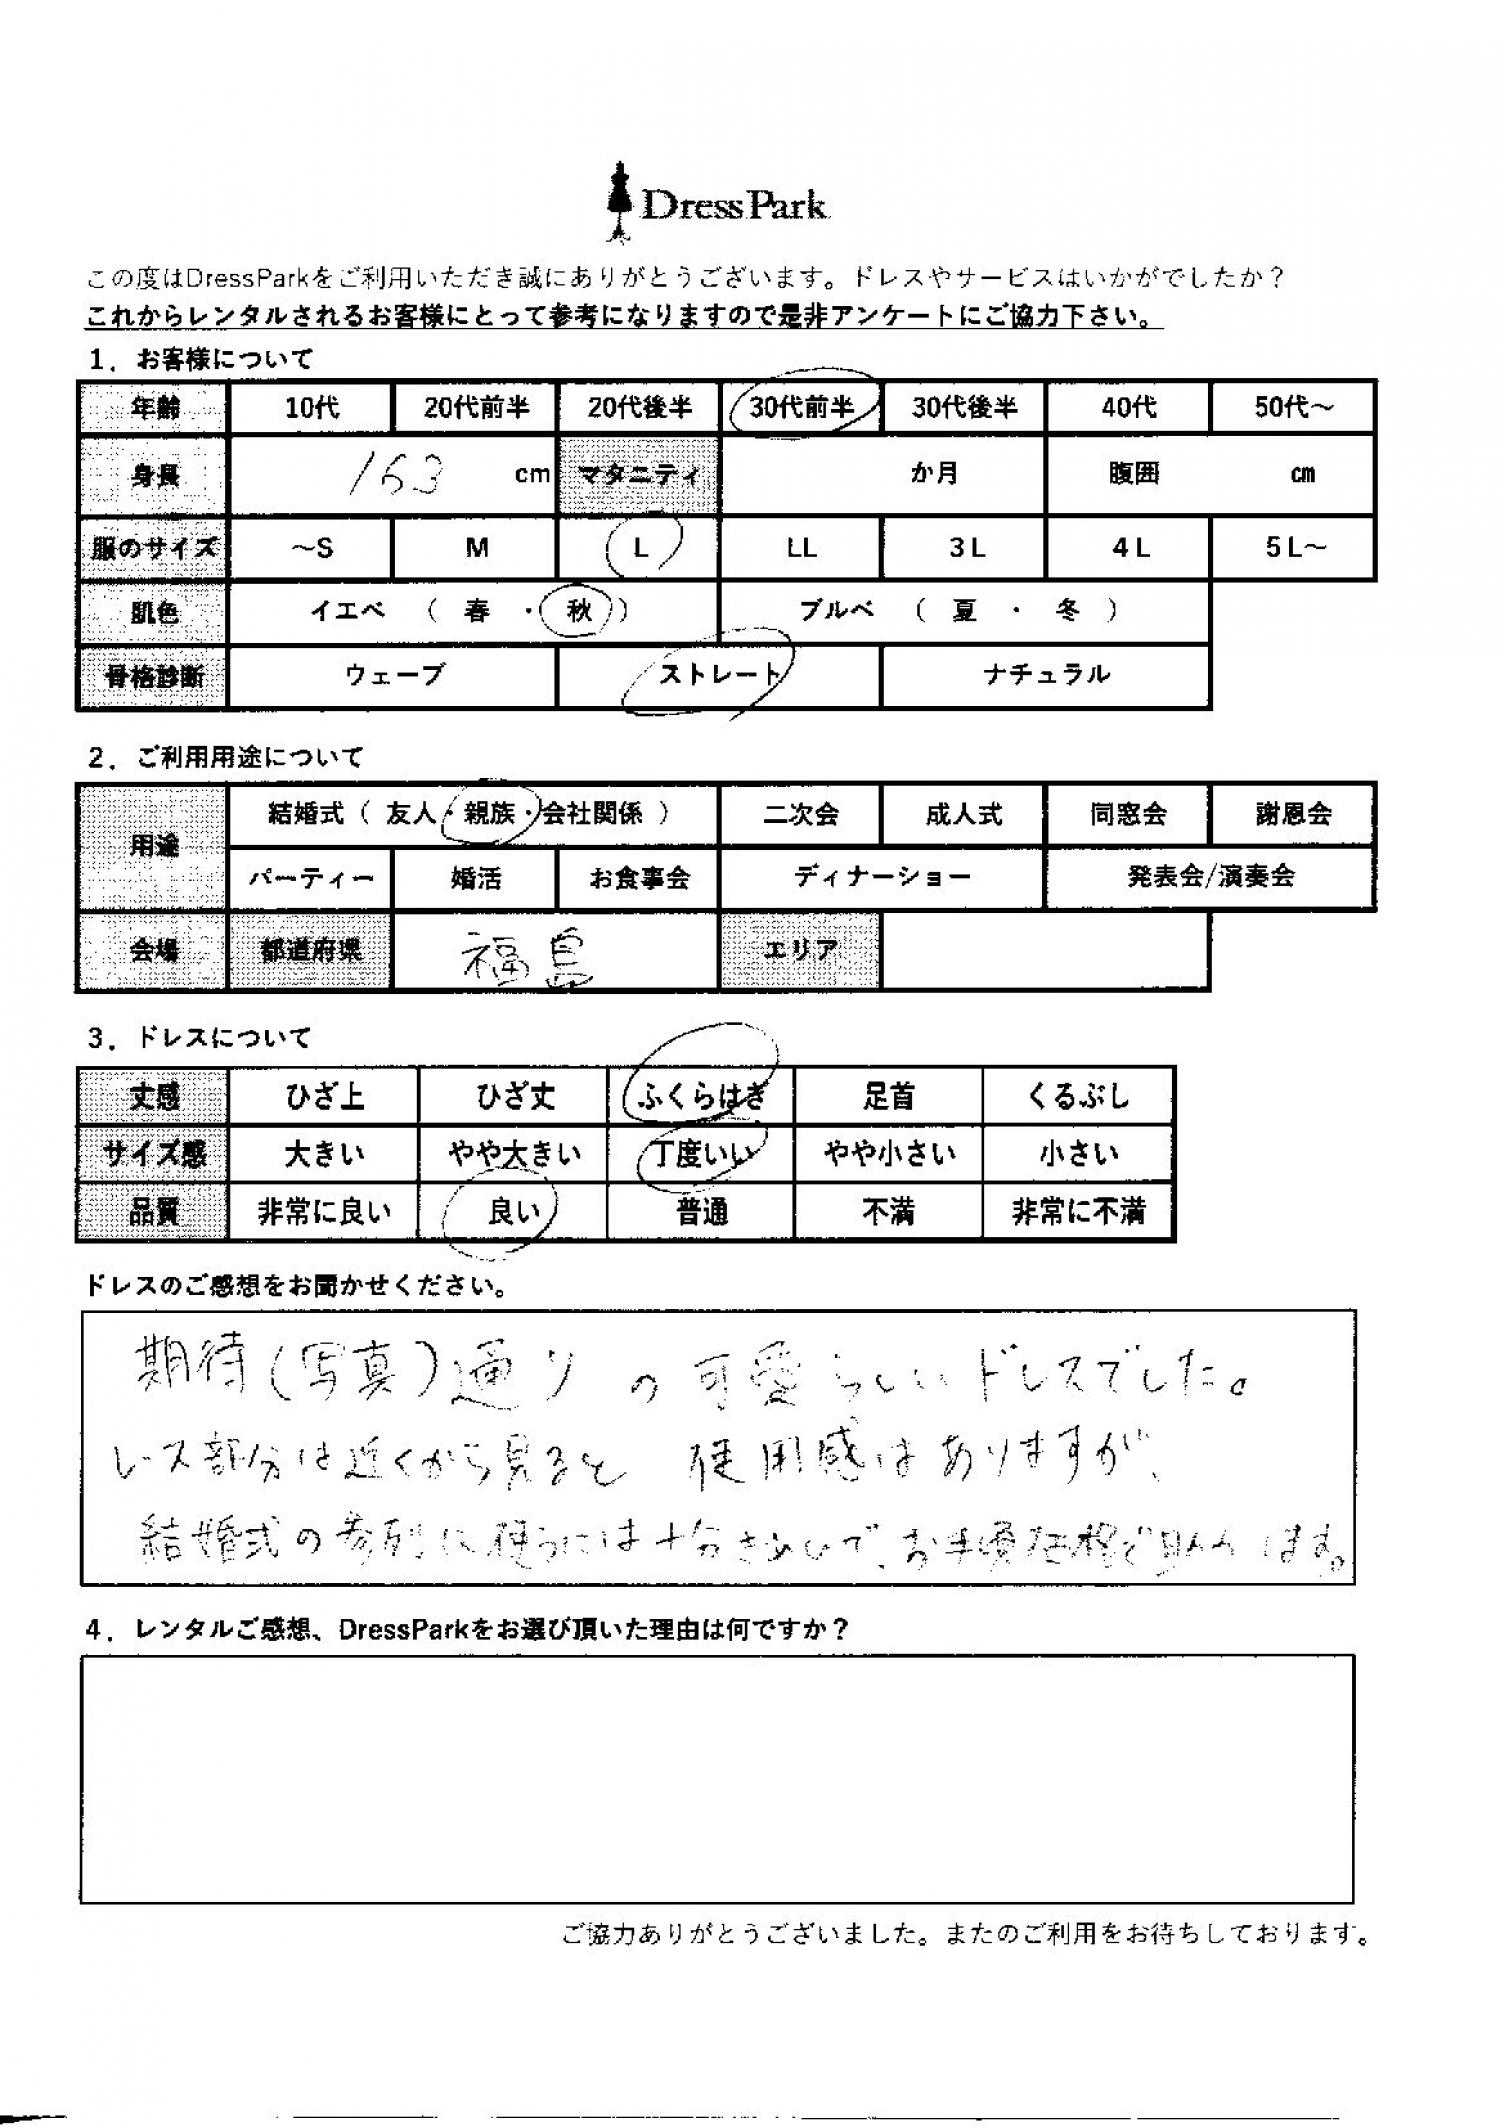 DressPark
この度はDressParkをご利用いただき誠にありがとうございます。ドレスやサービスはいかがでしたか？
これからレンタルされるお客様にとって参考になりますので是非アンケートにご協力下さい。
1．お客様について
年齢 10代 20代前半 20代後半 30代前半 30代後半 40代 50代～
身長 163 cm マタニティ か月 腹囲 cm
服のサイズ ～S M L LL 3L 4L 5L～
肌色 イエベ （ 春 ・ 秋 ） ブルベ （ 夏 ・ 冬 ）
骨格診断 ウェーブ ストレート ナチュラル
2．ご利用用途について
用途 結婚式（ 友人・親族・会社関係 ） 二次会 成人式 同窓会 謝恩会
パーティー 婚活 お食事会 ディナーショー 発表会/演奏会
会場 都道府県 福島 エリア
3．ドレスについて
丈感 ひざ上 ひざ丈 ふくらはぎ 足首 くるぶし
サイズ感 大きい やや大きい 丁度いい やや小さい 小さい
品質 非常に良い 良い 普通 不満 非常に不満
ドレスのご感想をお聞かせください。
期待(写真)通りの可愛らしいドレスでした。
レース部分は近くから見ると 使用感はありますが、
結婚式の参列に使うには十分きれいで、お手頃価格で
4．レンタルご感想、DressParkをお選び頂いた理由は何ですか？
ご協力ありがとうございました。またのご利用をお待ちしております。